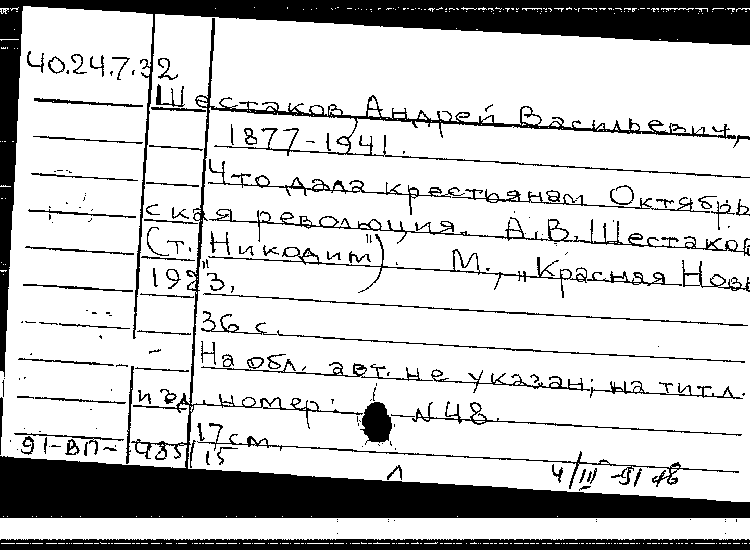 40.24.7.32
Шестаков, Андрей Васильевич,
1877-1941.
Что дала крестьянам Октябрь
ская революция. А.В.Шестаков
(т. Никодим"). М., „Красная Новь
1923",
36 с.
На обл. авт. не указан; на тит.л.
изд. номер: N 48.
17 см.
91-ВП- 485/15
4/III -91